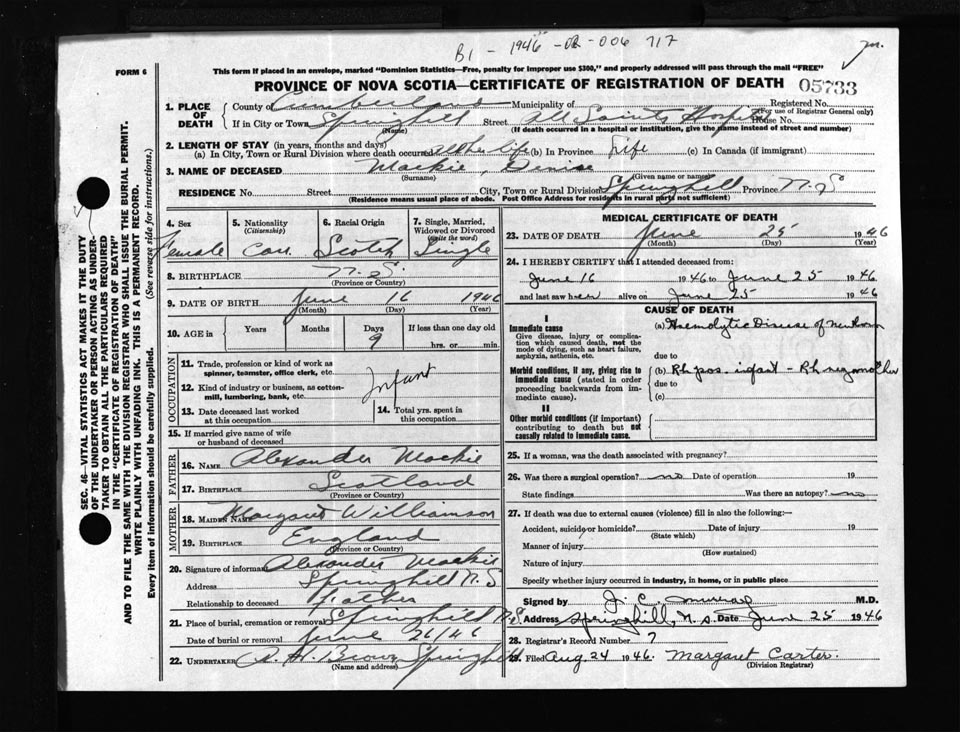 B1 - 1946 - 02 - 006 717
m.
FORM 6
This form if placed in an envelope, marked "Dominion Statistics—Free, penalty for improper use $300," and properly addressed will pass through the mail "FREE"
PROVINCE OF NOVA SCOTIA—CERTIFICATE OF REGISTRATION OF DEATH 05733
1. PLACE OF DEATH County of Cumberland Municipality of Registered No. (For use of Registrar General only)
If in City or Town Springhill (Name) Street All Saints Hospital House No.
(If death occurred in a hospital or institution, give the name instead of street and number)
2. LENGTH OF STAY (in years, months and days)
(a) In City, Town or Rural Division where death occurred all her life (b) In Province Life (c) In Canada (if immigrant)
3. NAME OF DECEASED Mackie, Denise
(Surname) (Given name or names)
RESIDENCE No. Street City, Town or Rural Division Springhill Province N.S.
(Residence means usual place of abode. Post Office Address for residents in rural parts not sufficient)
4. Sex Female
5. Nationality (Citizenship) Can.
6. Racial Origin Scotch
7. Single, Married, Widowed or Divorced (write the word) Single
8. BIRTHPLACE N.S.
(Province or Country)
9. DATE OF BIRTH June 16 1946
(Month) (Day) (Year)
10. AGE in Years Months Days 9 If less than one day old hrs. or min.
OCCUPATION
11. Trade, profession or kind of work as spinner, teamster, office clerk, etc.
12. Kind of industry or business, as cotton-mill, lumbering, bank, etc.
Infant
13. Date deceased last worked at this occupation
14. Total yrs. spent in this occupation
15. If married give name of wife or husband of deceased
FATHER
16. NAME Alexander Mackie
17. BIRTHPLACE Scotland
(Province or Country)
MOTHER
18. MAIDEN NAME Margaret Williamson
19. BIRTHPLACE England
(Province or Country)
20. Signature of informant Alexander Mackie
Address Springhill N.S
Relationship to deceased Father
21. Place of burial, cremation or removal Springhill N.S.
Date of burial or removal June 26/46
22. UNDERTAKER A. H. Brown Springhill
(Name and address)
MEDICAL CERTIFICATE OF DEATH
23. DATE OF DEATH June 25 1946
(Month) (Day) (Year)
24. I HEREBY CERTIFY that I attended deceased from:
June 16 1946 to June 25 1946
and last saw her alive on June 25 1946
CAUSE OF DEATH
I
Immediate cause
Give disease, injury or complication which caused death, not the mode of dying, such as heart failure, asphyxia, asthenia, etc.
(a) Haemolytic Disease of newborn
due to
Morbid conditions, if any, giving rise to immediate cause (stated in order proceeding backwards from immediate cause).
(b) Rh pos. infant - Rh neg mother
due to
(c)
II
Other morbid conditions (if important) contributing to death but not causally related to immediate cause.
25. If a woman, was the death associated with pregnancy?
26. Was there a surgical operation? no Date of operation 19
State findings Was there an autopsy? no
27. If death was due to external causes (violence) fill in also the following:—
Accident, suicide or homicide? Date of injury 19
(State which)
Manner of injury
(How sustained)
Nature of injury
Specify whether injury occurred in industry, in home, or in public place
Signed by J. C. Murray M.D.
Address Springhill, N.S. Date June 25 1946
28. Registrar's Record Number 7
29. Filed Aug. 24 1946. Margaret Carter.
(Division Registrar)
SEC. 46—VITAL STATISTICS ACT MAKES IT THE DUTY
OF THE UNDERTAKER OR PERSON ACTING AS UNDER-
TAKER TO OBTAIN ALL THE PARTICULARS REQUIRED
IN THE "CERTIFICATE OF REGISTRATION OF DEATH"
AND TO FILE THE SAME WITH THE DIVISION REGISTRAR WHO SHALL ISSUE THE BURIAL PERMIT.
WRITE PLAINLY WITH UNFADING INK. THIS IS A PERMANENT RECORD.
Every item of information should be carefully supplied. (See reverse side for instructions.)